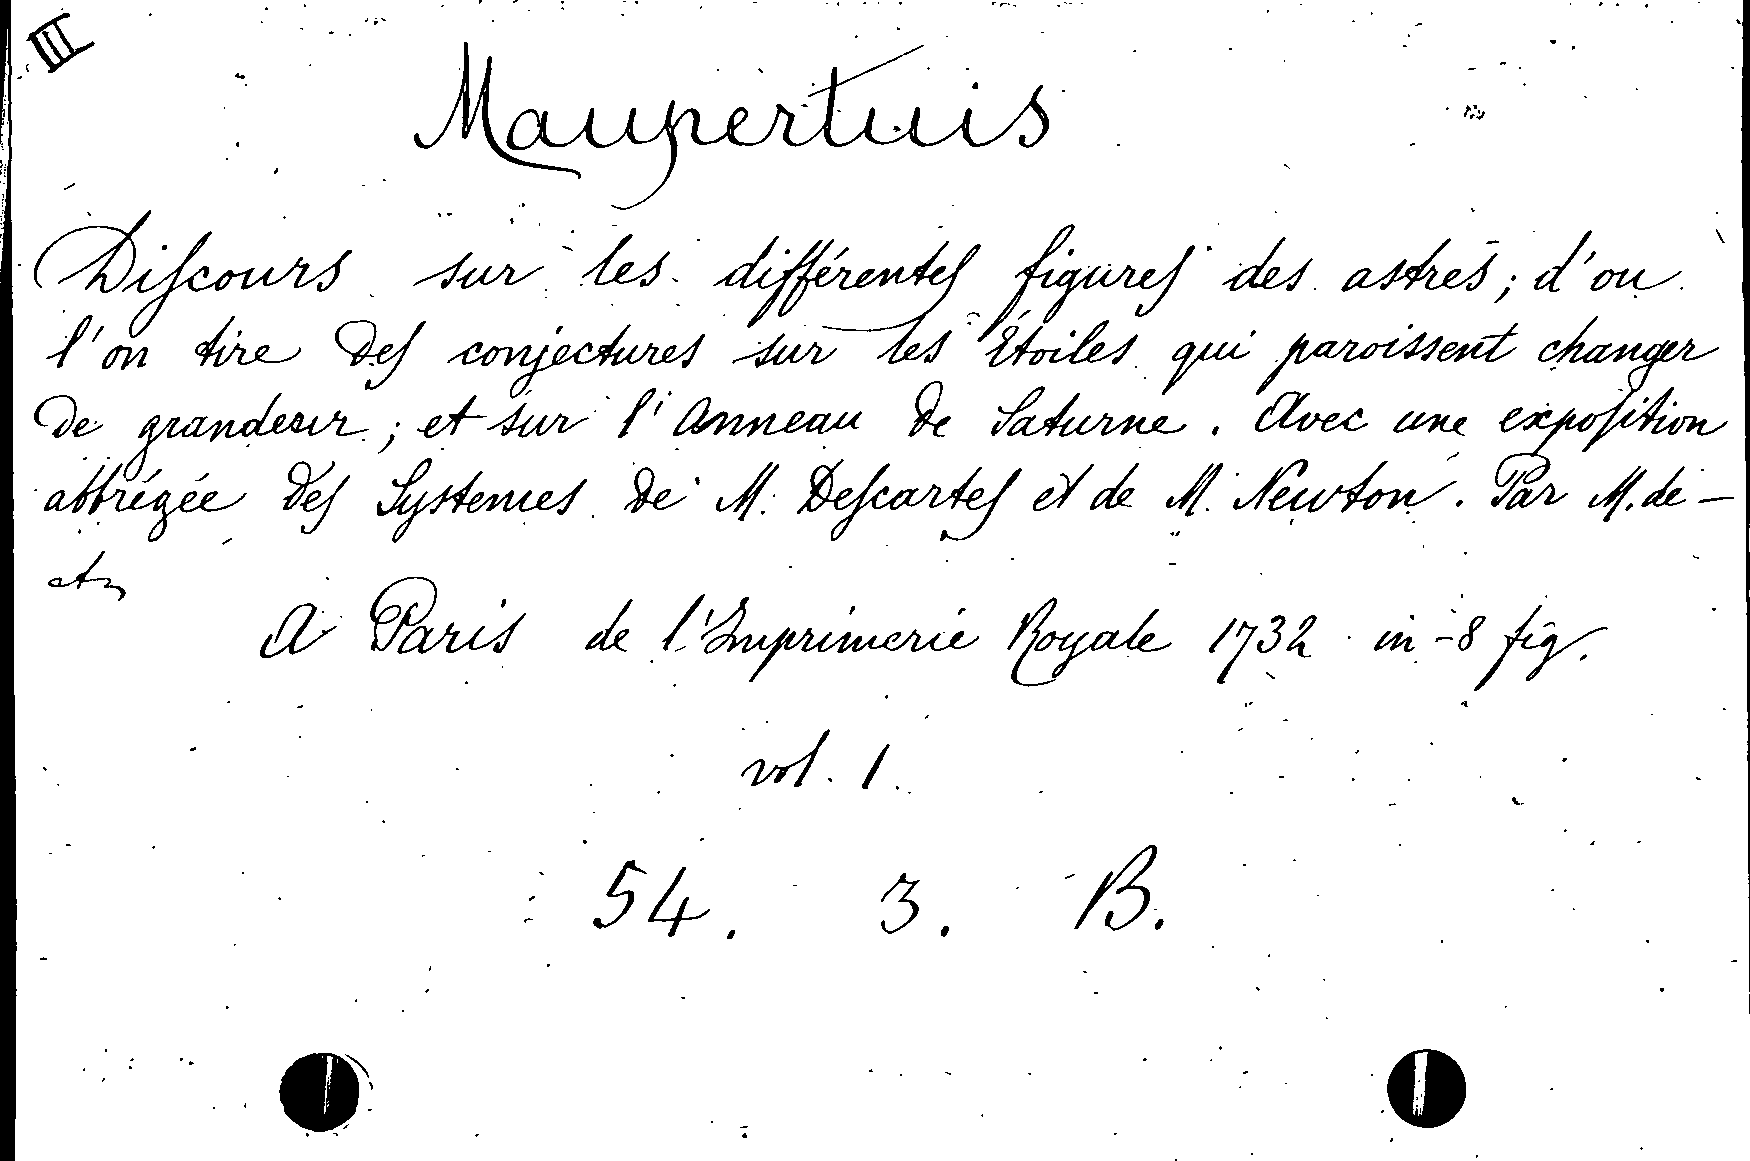 III
Maupertuis
Discours sur les différentes figures des astres; d'ou
l'on tire des conjectures sur les Étoiles qui paroissent changer
de grandeur; et sur l'Anneau de Saturne. Avec une exposition
abbrégée des Systemes de M. Descartes et de M. Newton. Par M. de —
etc
A Paris de l'Imprimerie Royale 1732 in-8 fig.
vol. 1.
54. 3. B.